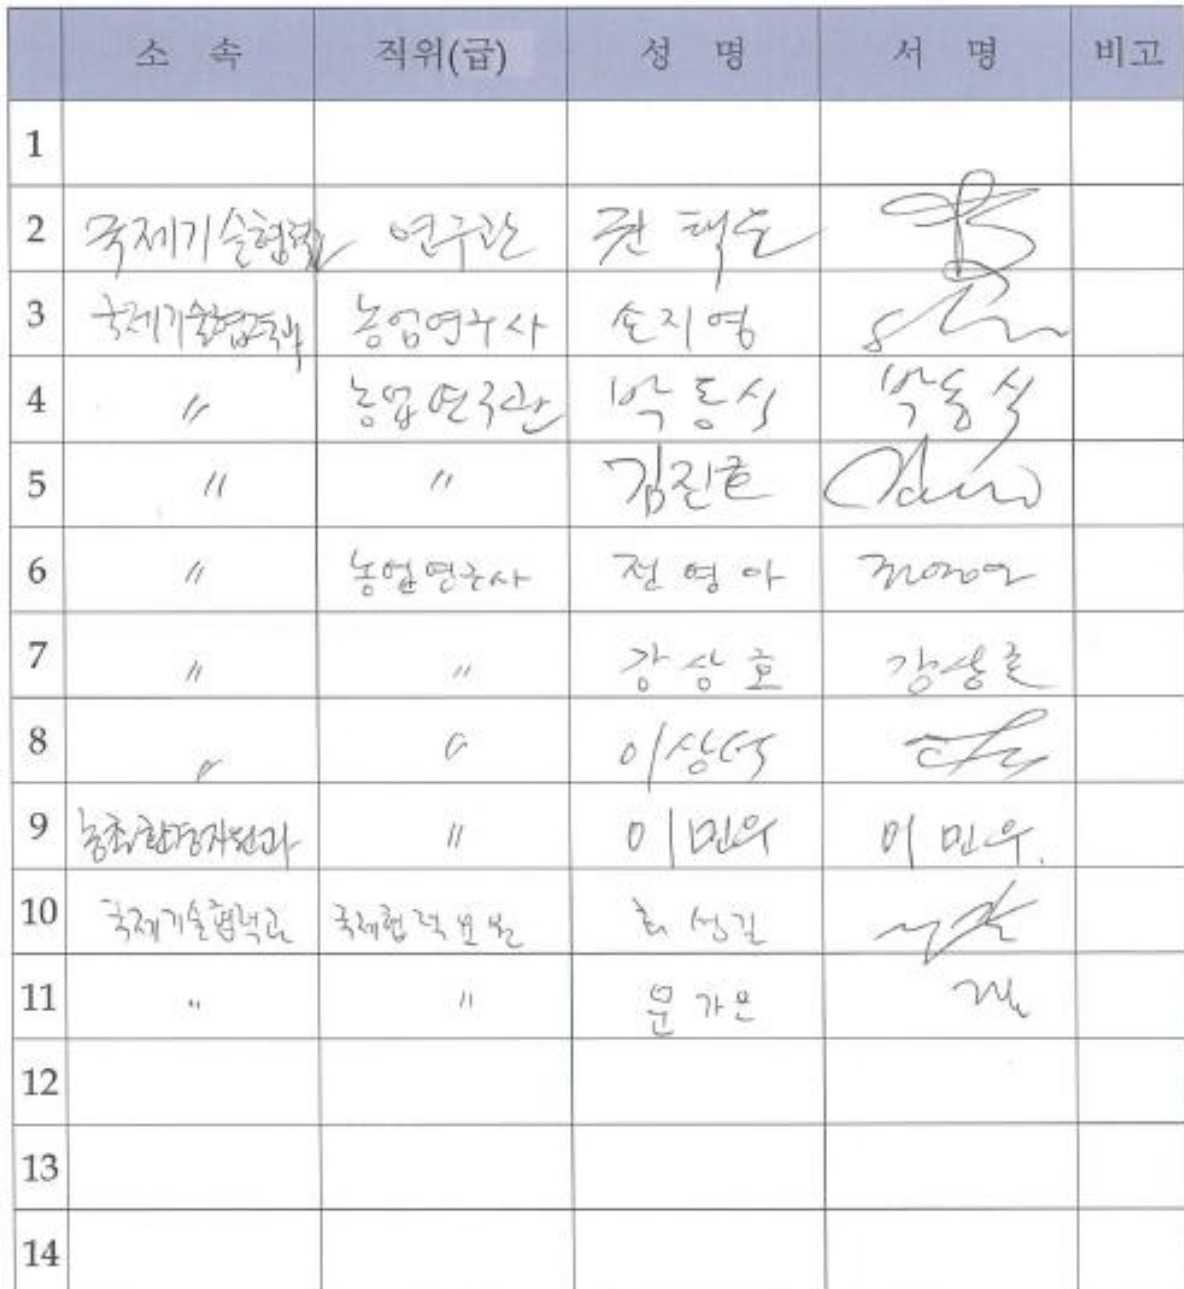 소 속 직위(급) 성 명 서 명 비고
1
2 국제기술협력과 연구관 권택순
3 국제기술협력과 농업연구사 손지영
4 〃 농업연구관 박동식 박동식
5 〃 〃 김진호
6 〃 농업연구사 전영아 전영아
7 〃 〃 강상호 강상호
8 〃 〃 이상석
9 농촌환경자원과 〃 이민우 이민우.
10 국제기술협력과 국제협력요원 최성길
11 〃 〃 문가은
12
13
14